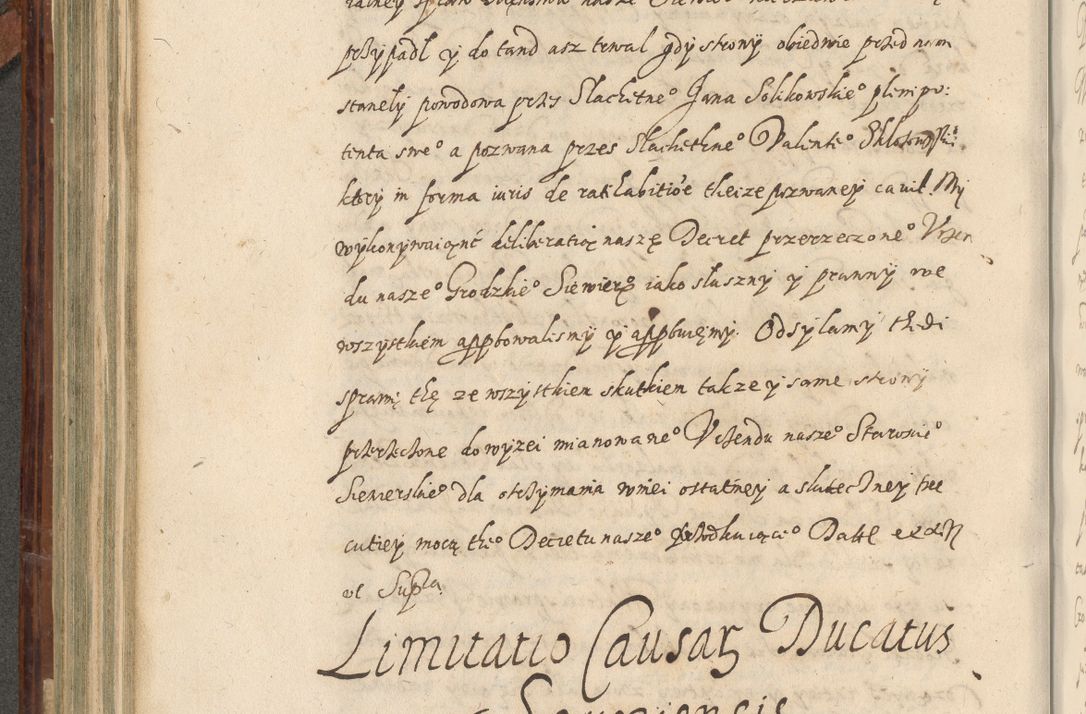 przypadł y do tand asz trwal gdy strony obiedwie przed nam
stanely powodowa przes Slachetne° Jana Solikowskie° plenipo:
tenta swe° a pozwana przes Slachethne° Valente°
ktory in forma iuris de ratihabitioe theize pozwaney cavit. My
wykonywaiąnć deliberatią naszę Decret przerzeczone° Vrzen
du nasze° Grodzkie° Siewierz iako sluszny y prawny we
wszystkiem appbowalismy y appbuięmy. Odsylamy thedi
sprawę thę ze wszystkiem skutkiem takze y same strony
przerzeczone do wyzei mianowane° Vrzendu nasze° Starosie°
Siewierskie° dla otrzymania wniei ostatniey a skuteczney exe
cutiey mocą the° Decretu nasze° Datt
vt Supra.
Limitatio Causaꝝ Ducatus
Seueriensis